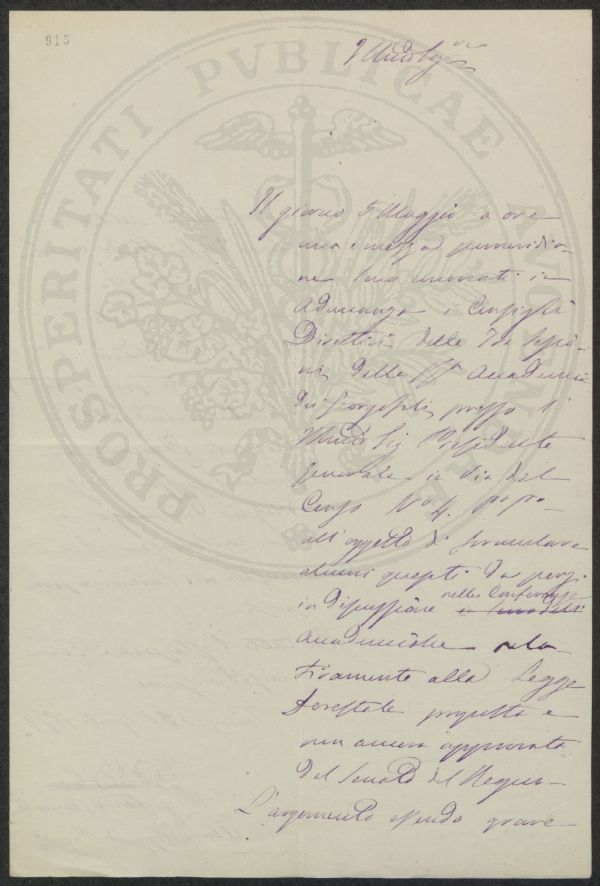 915
PROSPERITATI PVBLICAE
Il giorno 5 Maggio a ore
una e mezza pomeridia-
ne sono convocati in
Adunanza i Consigli
Direttivi delle Tre Sezio-
ni della Accademia
dei Georgofili presso l'
Presidente
Generale in Via del
No 4. po po
all'oggetto di formulare
alcuni quesiti da porsi
nelle Conferenze
in discussione
Accademiche rela
tivamente alla Legge
Forestale proposta e
non ancora approvata
dal Senato del Regno
L'argomento essendo grave